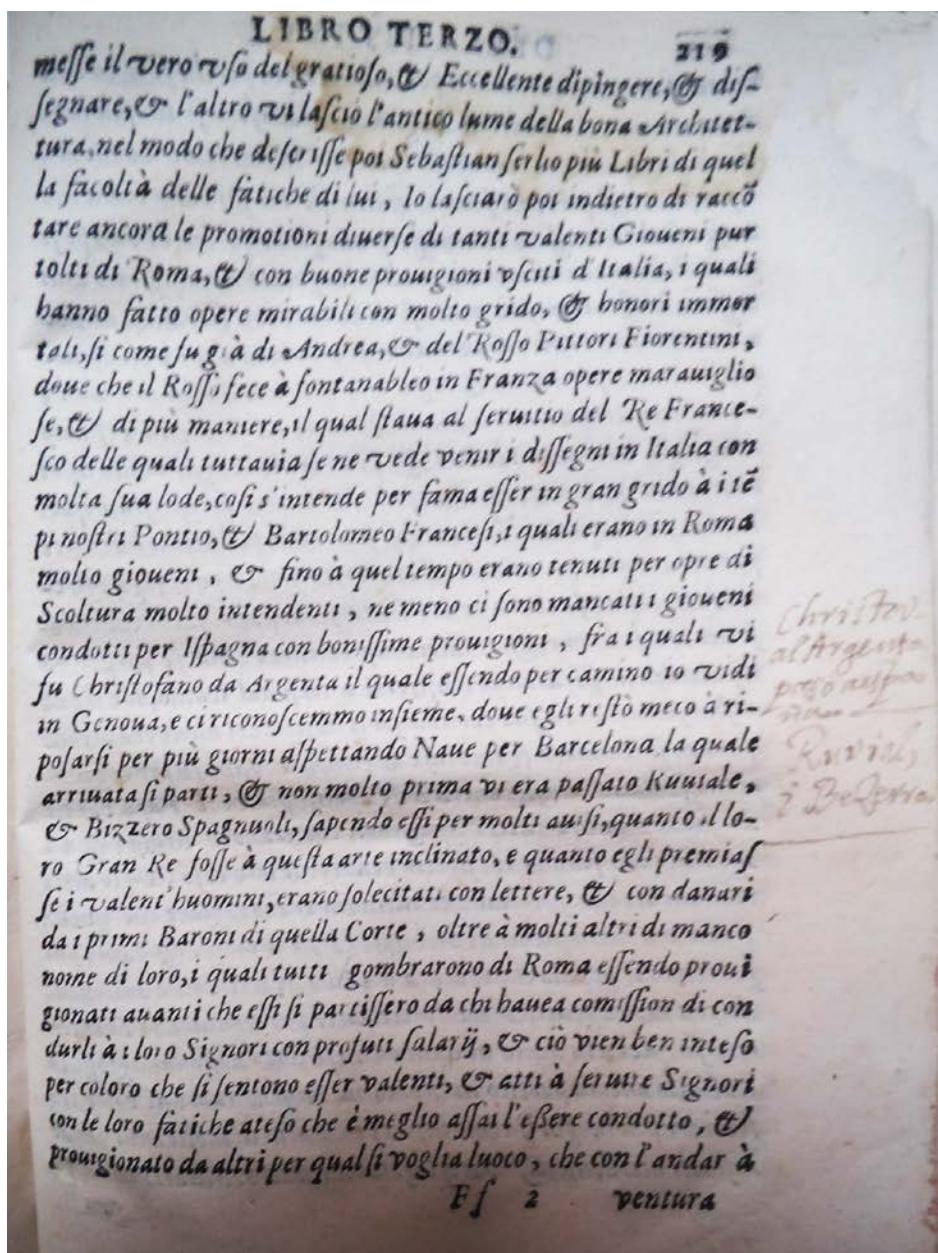 LIBRO TERZO. 219
messe il vero vso del gratioso, & Eccellente dipingere, & dis-
segnare, & l'altro vi lasciò l'antico lume della bona Architet-
tura, nel modo che descrisse poi Sebastian serlio più Libri di quel
la facoltà delle fatiche di lui, Io lasciarò poi indietro di raccõ
tare ancora le promotioni diuerse di tanti valenti Gioueni pur
tolti di Roma, & con buone prouigioni vsciti d'Italia, i quali
hanno fatto opere mirabili con molto grido, & honori immor
tali, si come fu già di Andrea, & del Rosso Pittori Fiorentini,
doue che il Rosso fece à fontanableo in Franza opere marauiglio
se, & di più maniere, il qual staua al seruitio del Re France-
sco delle quali tuttauia se ne vede venir i dissegni in Italia con
molta sua lode, cosi s'intende per fama esser in gran grido à i tẽ
pi nostri Pontio, & Bartolomeo Francesi, i quali erano in Roma
molto gioueni, & fino à quel tempo erano tenuti per opre di
Scoltura molto intendenti, ne meno ci sono mancati i gioueni
condotti per Ispagna con bonissime prouigioni, fra i quali vi
fu Christofano da Argenta il quale essendo per camino io vidi
in Genoua, e ci riconoscemmo insieme, doue egli restò meco à ri-
posarsi per più giorni aspettando Naue per Barcelona la quale
arriuata si parti, & non molto prima vi era passato Ruuiale,
& Bizzero Spagnuoli, sapendo essi per molti auisi, quanto il lo-
ro Gran Re fosse à questa arte inclinato, e quanto egli premias
se i valent'huomini, erano solecitati con lettere, & con danari
da i primi Baroni di quella Corte, oltre à molti altri di manco
nome di loro, i quali tutti gombrarono di Roma essendo proui
gionati auanti che essi si partissero da chi hauea comission di con
durli à i loro Signori con profuti salarij, & ciò vien ben inteso
per coloro che si sentono esser valenti, & atti à seruire Signori
con le loro fatiche ateso che è meglio assai l'essere condotto, &
prouigionato da altri per qual si voglia luoco, che con l'andar à
Ff 2 ventura
Christov
al Argenta
Ruvial,
i Bezerra